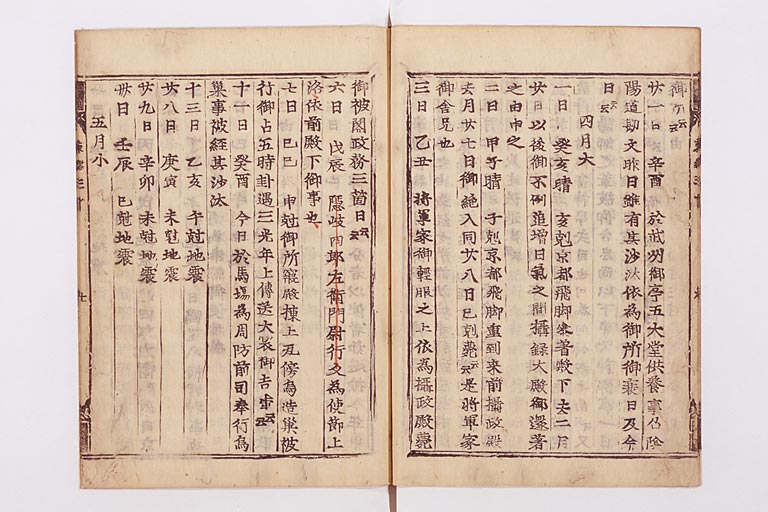 御所云云
廿一日 辛酉 於武州御亭五大堂供養事仍陰
陽道勘文昨日雖有其沙汰依為御所御衰日及今
日云云
四月大
一日 癸亥晴 亥剋京都飛脚参著殿下去二月
廿日以後御不例追増日氣之間攝録大殿御還著
之由申之
二日 甲子晴 子剋京都飛脚重到来前攝政殿
去月廿七日御絶入同廿八日巳剋薨云云是將軍家
御舎兄也
三日 乙丑 將軍家御輕服之上依為攝政殿薨
御被閣政務三箇日云云
六日 戊辰 隱岐四郎左衛門尉行久為使節上
洛依前殿下御事也
七日 己巳 申剋御所寢殿棟上瓦傍為造巣被
行御占五時卦遇三光年上傳送大裳御吉事云云
十一日 癸酉 今日於馬場為周防前司奉行為
巣事被經其沙汰
十三日 乙亥 午剋地震
廿八日 庚寅 未剋地震
廿九日 辛卯 未剋地震
卅日 壬辰 巳剋地震
五月小